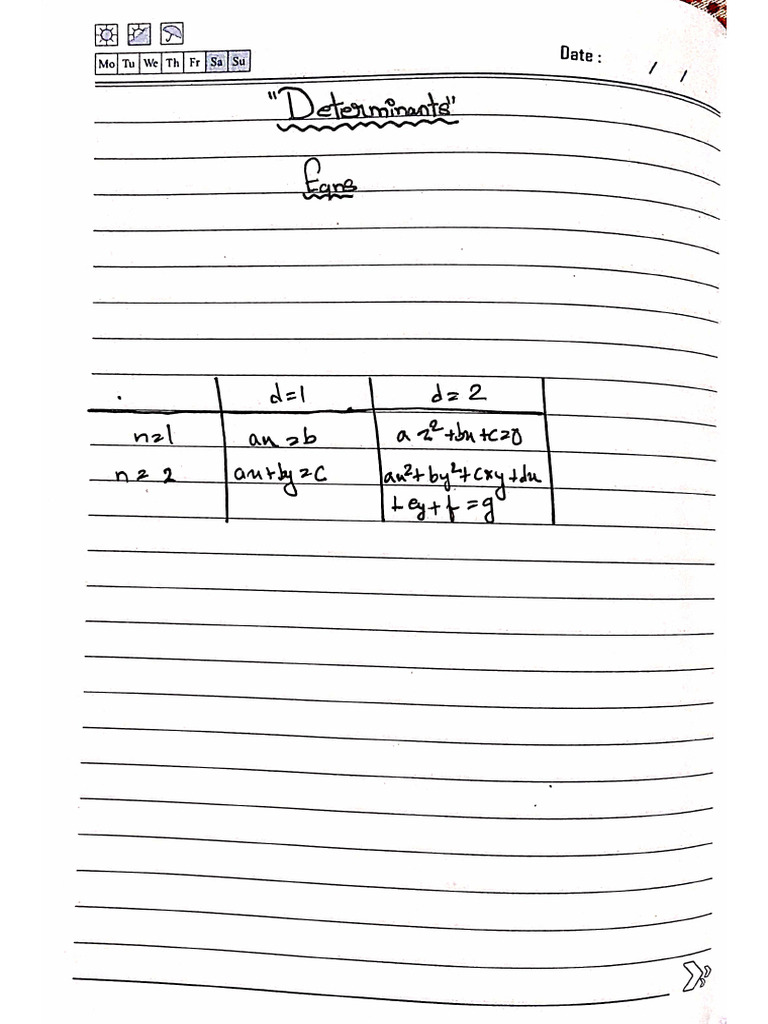 Mo Tu We Th Fr Sa Su
Date : / /
"Determinants"
Eqns
d=1 d=2
n=1 ax=b ax²+bx+c=0
n=2 ax+by=c ax²+by²+cxy+dx
+ey+f=g